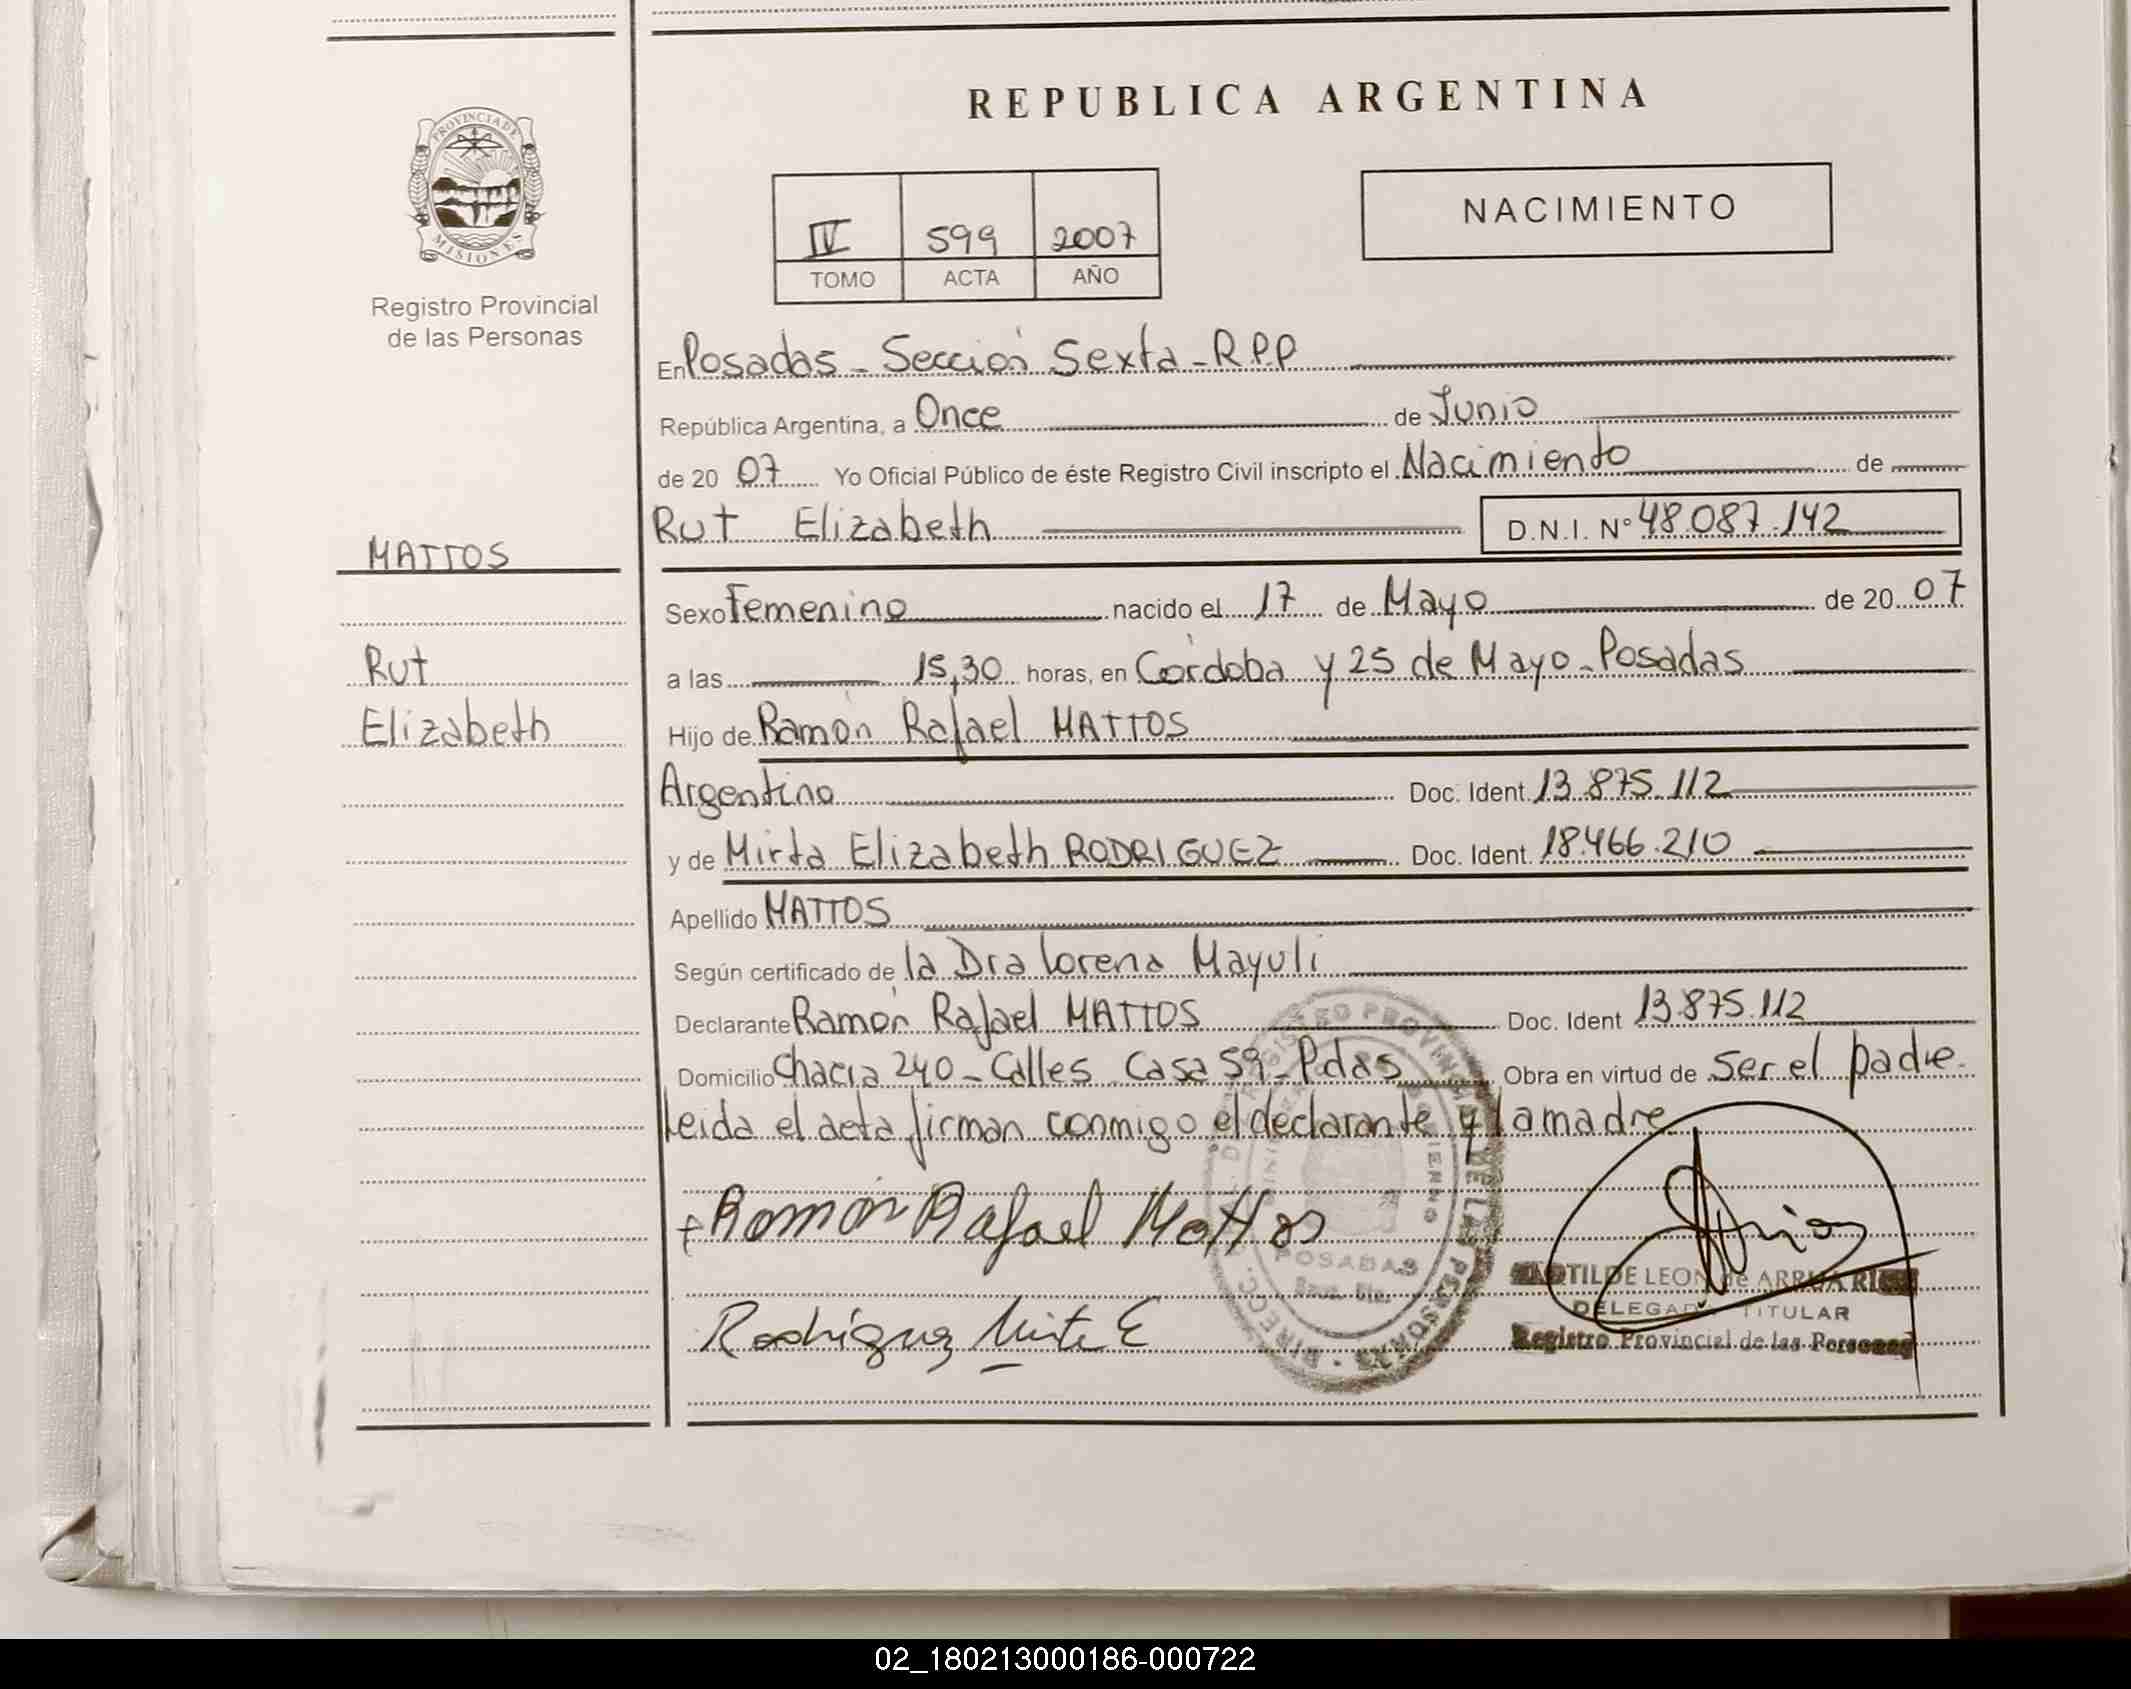 REPUBLICA ARGENTINA
PROVINCIA DE
MISIONES
Registro Provincial
de las Personas
IV 599 2007
TOMO ACTA AÑO
NACIMIENTO
En Posadas - Sección Sexta - R.P.P
República Argentina, a Once de Junio
de 20 07 Yo Oficial Público de éste Registro Civil inscripto el Nacimiento de
Rut Elizabeth D.N.I. N° 48.087.142
MATTOS
Rut
Elizabeth
Sexo Femenino nacido el 17 de Mayo de 20 07
a las 15,30 horas, en Córdoba y 25 de Mayo - Posadas
Hijo de Ramón Rafael MATTOS
Argentino Doc. Ident. 13.875.112
y de Mirta Elizabeth RODRIGUEZ Doc. Ident. 18.466.210
Apellido MATTOS
Según certificado de la Dra Lorena Mayuli
Declarante Ramón Rafael MATTOS Doc. Ident 13.875.112
Domicilio Chacra 240 - Calles Casa 59 - Pdas Obra en virtud de ser el padre.
Leida el acta firman conmigo el declarante y la madre
Ramón Rafael Mattos
Rodriguez Mirta E
DIRECC. REGISTRO PROVINCIAL DE LAS PERSONAS
POSADAS
CLOTILDE LEON de ARRUA RIOS
DELEGADA TITULAR
Registro Provincial de las Personas
02_180213000186-000722